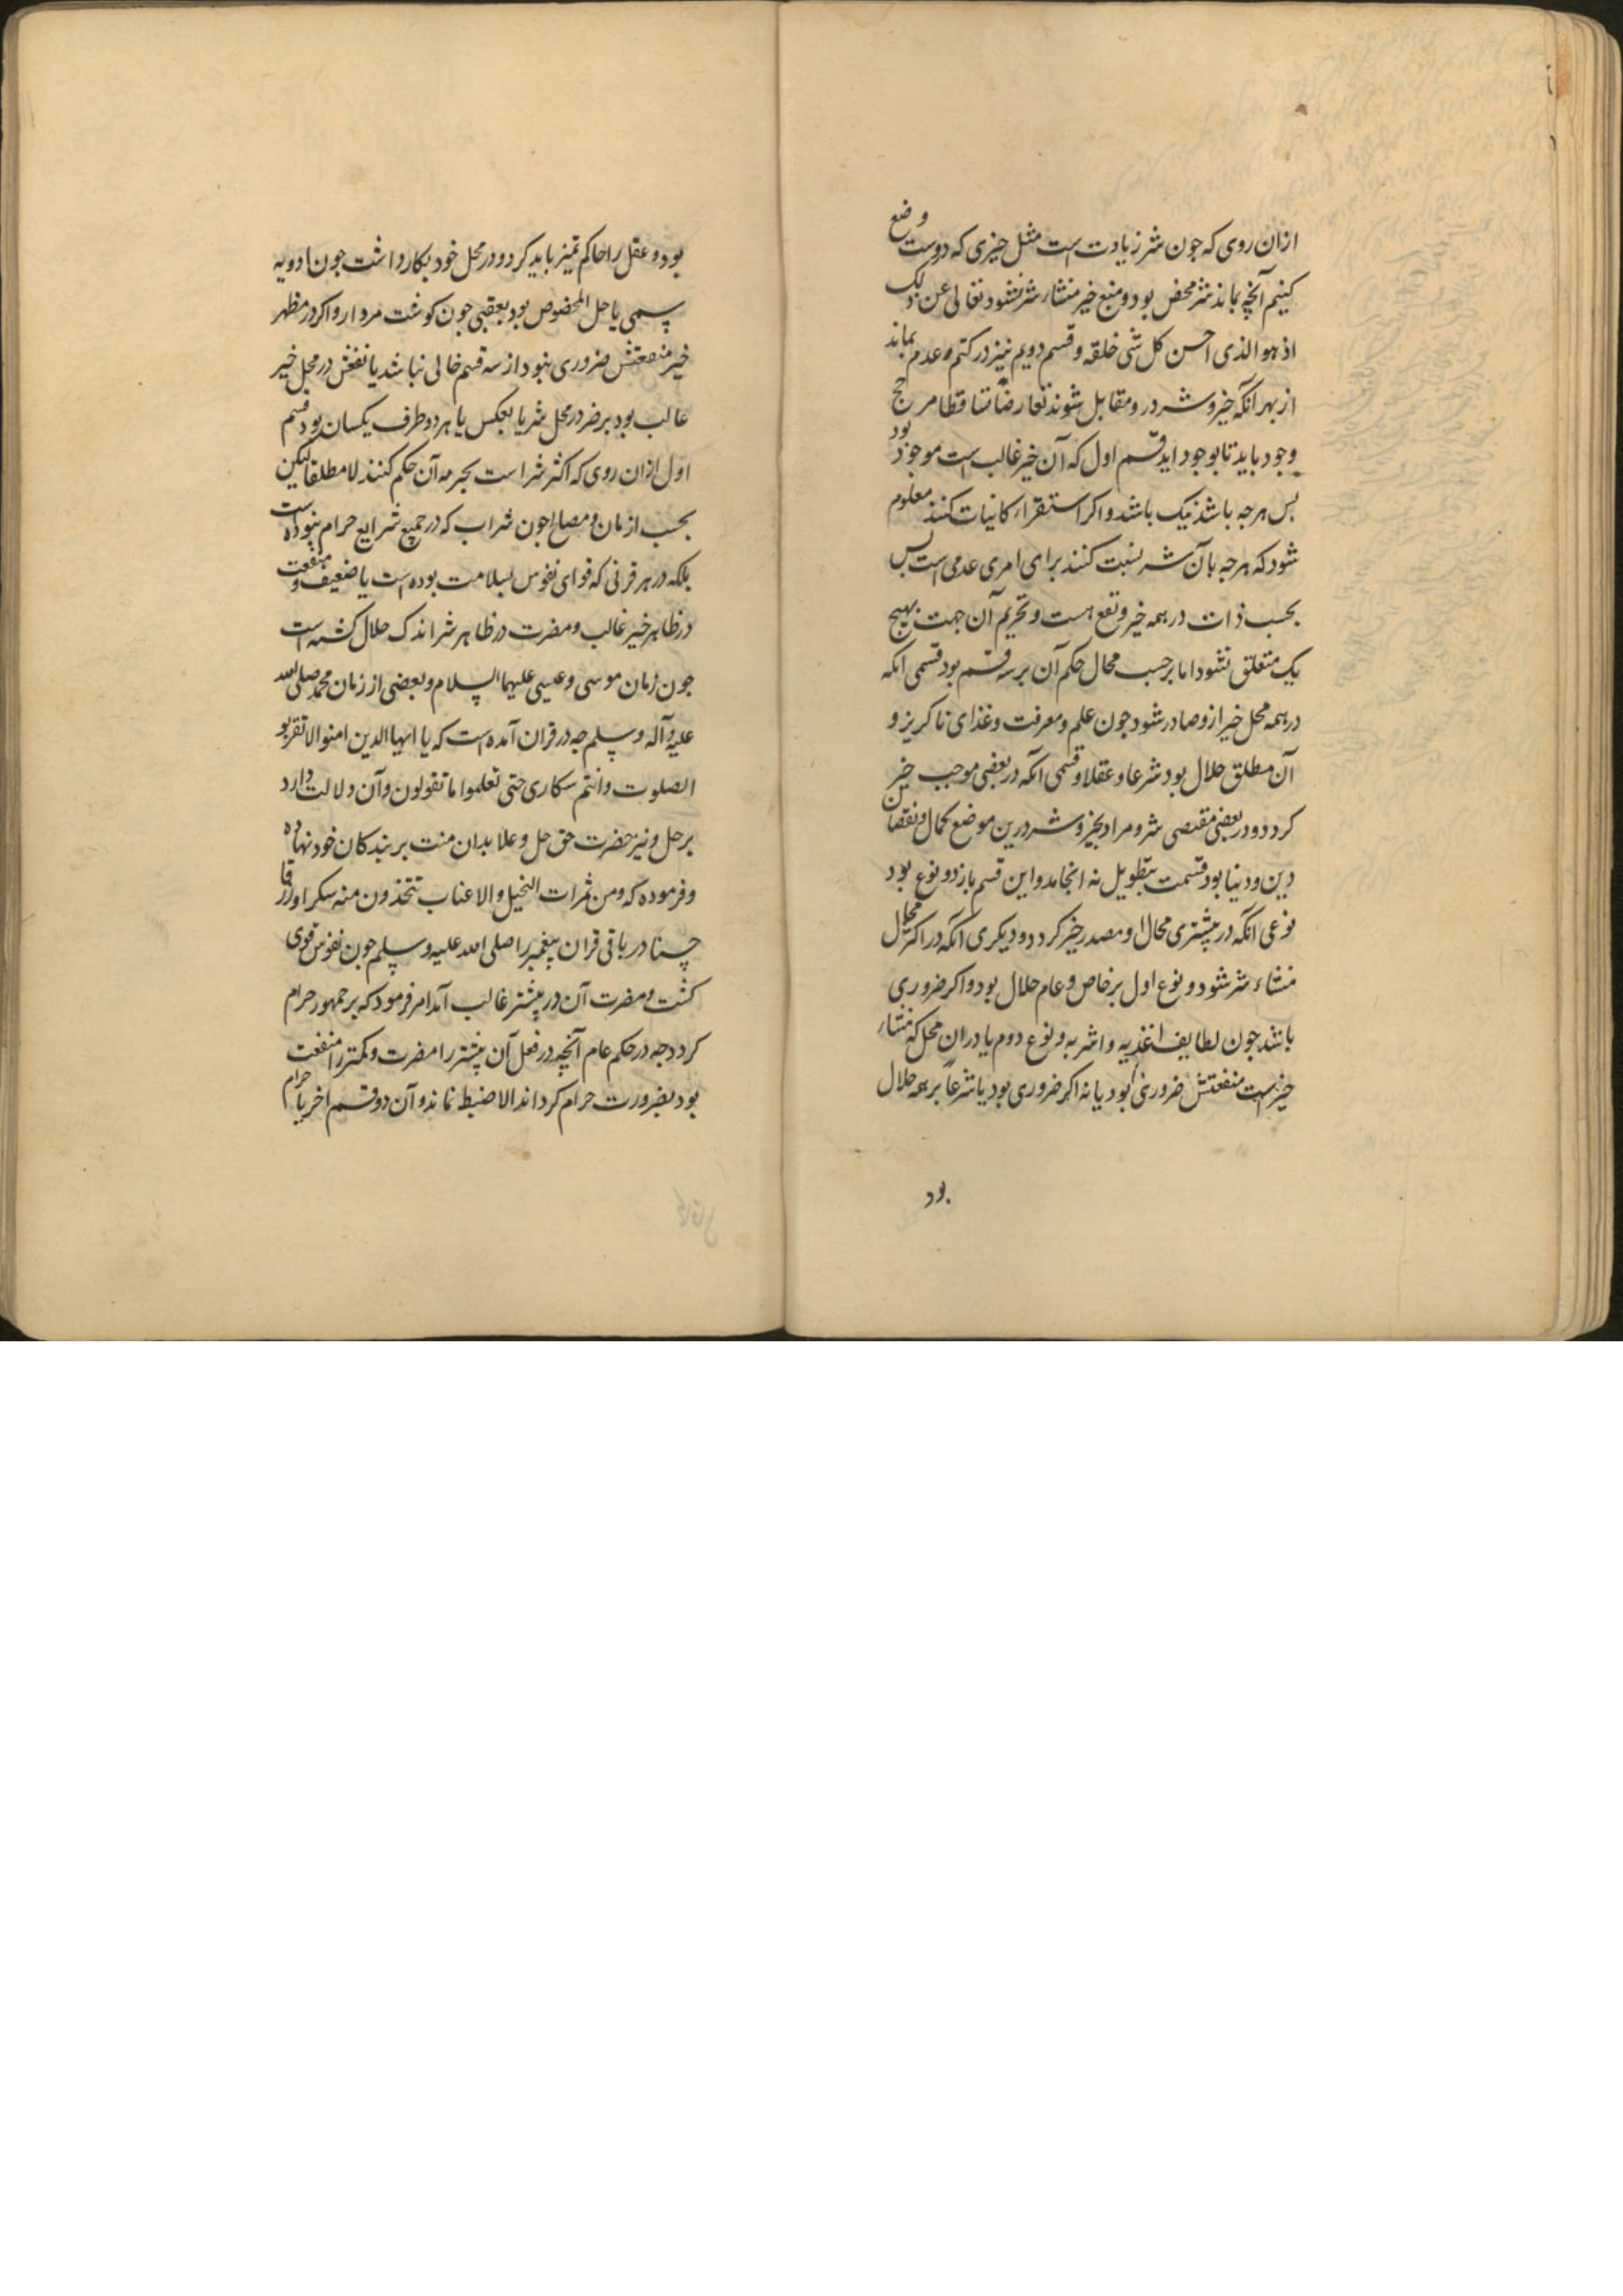 ازان روی که جون شر زیادت است مثل خیزی که دوست وضع
کنیم آنچه بماند شر محض بود و منبع خیر منشاء شر نشود تعالی عن ذلک
اذ هو الذی احسن کل شی خلقه و قسم دویم نیز در کتم عدم بماند
از بهر آنکه خیر و شر در و مقابل شوند تعارضا تساقطا مرجح
وجود باید تا بوجود اید قسم اول که آن خیر غالب است موجود بود
بس هر جه باشد نیک باشد و اکر استقراء کاینات کنند معلوم
شود که هر جه بآن شر نسبت کنند برای امری عدمی است بس
بحسب ذات در همه خیر و نفع هست و تحریم آن جهت بهیج
یک متعلق نشود اما بر حسب محال حکم آن بر سه قسم بود قسمی انکه
در همه محل خیر ازو صادر شود جون علم و معرفت و غذای ناکریز و
آن مطلق حلال بود شرعا و عقلا و قسمی انکه در بعضی موجب خیر
کردد و در بعضی مقتصی شر و مراد بخیر و شر درین موضع کمال و نقصان
دین و دنیا بود قسمت بتطویل نه انجامد و این قسم باز دو نوع بود
نوعی انکه در بیشتری محال او مصدر خیر کردد و دیکری آنکه در اکثر محال
منشاء شر شود و نوع اول بر خاص و عام حلال بود و اکر ضروری
باشد جون لطایف اغذیه و اشربه و نوع دوم یا در ان محل که منشاء
خیر است منفعتش ضروری بود یا نه اکر ضروری بود یا شرعاً بر همه حلال
بود
بود و عقل را حاکم تمیز باید کرد و در محل خود بکار داشت جون ادویه
سمی یا حل المخصوص بود بعقبی جون کوشت مردار و اکر در مظهر
خیر منفعتش ضروری نبود از سه قسم خالی نباشد یا نفعش در محل خیر
غالب بود بر ضر در محل شر یا بعکس یا هر دو طرف یکسان بود قسم
اول ازان روی که اکثر شر است بحرمه آن حکم کنند لا مطلقا لیکن
بحسب ازمان و مصالح جون شراب که در جمیع شرایع حرام نبوده است
بلکه در هر قرنی که قوای نفوس بسلامت بوده است یا ضعیف و منفعت
در ظاهر خیر غالب و مضرت در ظاهر شر اندک حلال کشته است
جون زمان موسی و عیسی علیهما السلام و بعضی از زمان محمد صلی الله
علیه و آله و سلم جه در قران آمده است که یا ایها الدین امنوا لا تقربو
الصلوت و انتم سکاری حتی تعلموا ما تقولون و آن دلالت دارد
بر حل و نیز حضرت حق جل و علا بدان منت بر بندکان خود نهاده
و فرموده که و من ثمرات النخیل و الاعناب تتخذون منه سکرا و رزقا
حسنا در باقی قران پیغمبر را صلی الله علیه و سلم جون نفوس قوی
کشت و مضرت آن در بیشتر غالب آمد امر فرمود که بر جمهور حرام
کردد جه در حکم عام آنچه در فعل آن بیشتر را مضرت و کمتر را منفعت
بود بضرورت حرام کرداند الا ضبط نماند و آن دو قسم اخر یا حرام